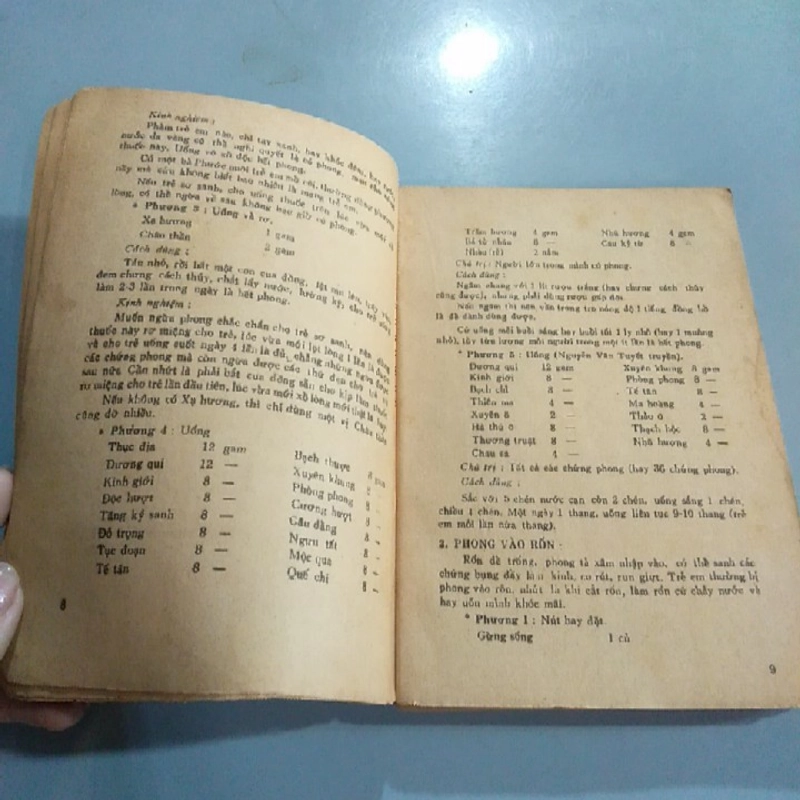 Kinh nghiệm :
Phàm trẻ em nào, chỉ tay xanh, hay khóc đêm, hay
nước da vàng có thể nghi quyết là có phong,
thuốc này. Uống vô sẽ độc hết phong.
Có một bà Phước nuôi trẻ em mồ côi, thường dùng phương
này mà cứu không biết bao nhiêu là mạng trẻ em.
Nếu trẻ sơ sanh, cho uống thuốc trên lúc vừa mới
lòng, có thể ngừa về sau không bao giờ có phong.
* Phương 3 : Uống và rơ.
Xạ hương 1 gam
Châu thần 2 gam
Cách dùng :
Tán nhỏ, rồi bắt một con cua đồng, lột mu lên,
đem chưng cách thủy, chắt lấy nước, cho trẻ uống
làm 2-3 lần trong ngày là hết phong.
Kinh nghiệm :
Muốn ngừa phong chắc chắn cho trẻ sơ sanh, nên dùng
thuốc này rơ miệng cho trẻ, lúc vừa mới lọt lòng 1 lần
và cho trẻ uống suốt ngày 4 lần là đủ, chẳng những ngừa được
các chứng phong mà còn ngừa được các thứ đẹn cho trẻ
sau nữa. Cần nhứt là phải bắt cua đồng sẵn cho kịp làm thuốc
rơ miệng cho trẻ lần đầu tiên, lúc vừa mới xổ lòng mới thiệt là hay.
Nếu không có Xạ hương, thì chỉ dùng một vị Châu thần
cũng đỡ nhiều.
* Phương 4 : Uống
Thục địa 12 gam Bạch thược 8 gam
Dương qui 12 — Xuyên khung 8 —
Kinh giới 8 — Phòng phong 8 —
Độc hượt 8 — Cương hượt 8 —
Tăng ký sanh 8 — Câu đằng 8 —
Đỗ trọng 8 — Ngưu tất 8 —
Tục đoạn 8 — Mộc qua 8 —
Tế tân 8 — Quế chi 8 —
8
Trầm hương 4 gam Nhũ hương 4 gam
8 — Cau kỷ tử 8 —
Nhàu (rễ) 2 nắm
Chủ trị : Người lớn trong mình có phong.
Cách dùng :
Ngâm chung với 1 lít rượu trắng (hay chưng cách thủy
cũng được), nhưng phải dùng rượu gấp đôi.
Nếu ngâm thì nên vặn trong tro nóng độ 1 tiếng đồng hồ
là đã dành dùng được.
Cứ uống mỗi buổi sáng hay buổi tối 1 ly nhỏ (hay 1 muỗng
nhỏ), tùy tửu lượng mỗi người trong một ít lần là hết phong.
* Phương 5 : Uống (Nguyễn Văn Tuyết truyền).
Dương qui 12 gam Xuyên khung 8 gam
Kinh giới 8 — Phòng phong 8 —
Bạch chỉ 8 — Tế tân 2 —
Thiên ma 4 — Ma hoàng 4 —
Xuyên ô 2 — Thảo ô 2 —
Hà thủ ô 8 — Thạch hộc 8 —
Thương truật 8 — Nhũ hương 4 —
Châu sa 4 —
Chủ trị : Tất cả các chứng phong (hay 36 chứng phong).
Cách dùng :
Sắc với 5 chén nước cạn còn 2 chén, uống sáng 1 chén,
chiều 1 chén. Một ngày 1 thang, uống liên tục 9-10 thang (trẻ
em mỗi lần nửa thang).
2. PHONG VÀO RỐN :
Rốn để trống, phong tà xâm nhập vào, có thể sanh các
chứng bụng đầy làm kinh, co rút, run giựt. Trẻ em thường bị
phong vào rốn, nhứt là khi cắt rốn, làm rốn cứ chảy nước và
hay uốn mình khóc mãi.
* Phương 1 : Nút hay đặt.
Gừng sống 1 củ
9